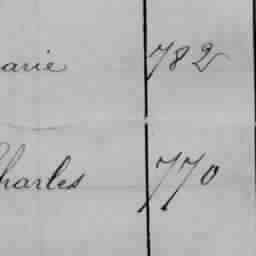 arie 782
harles 770